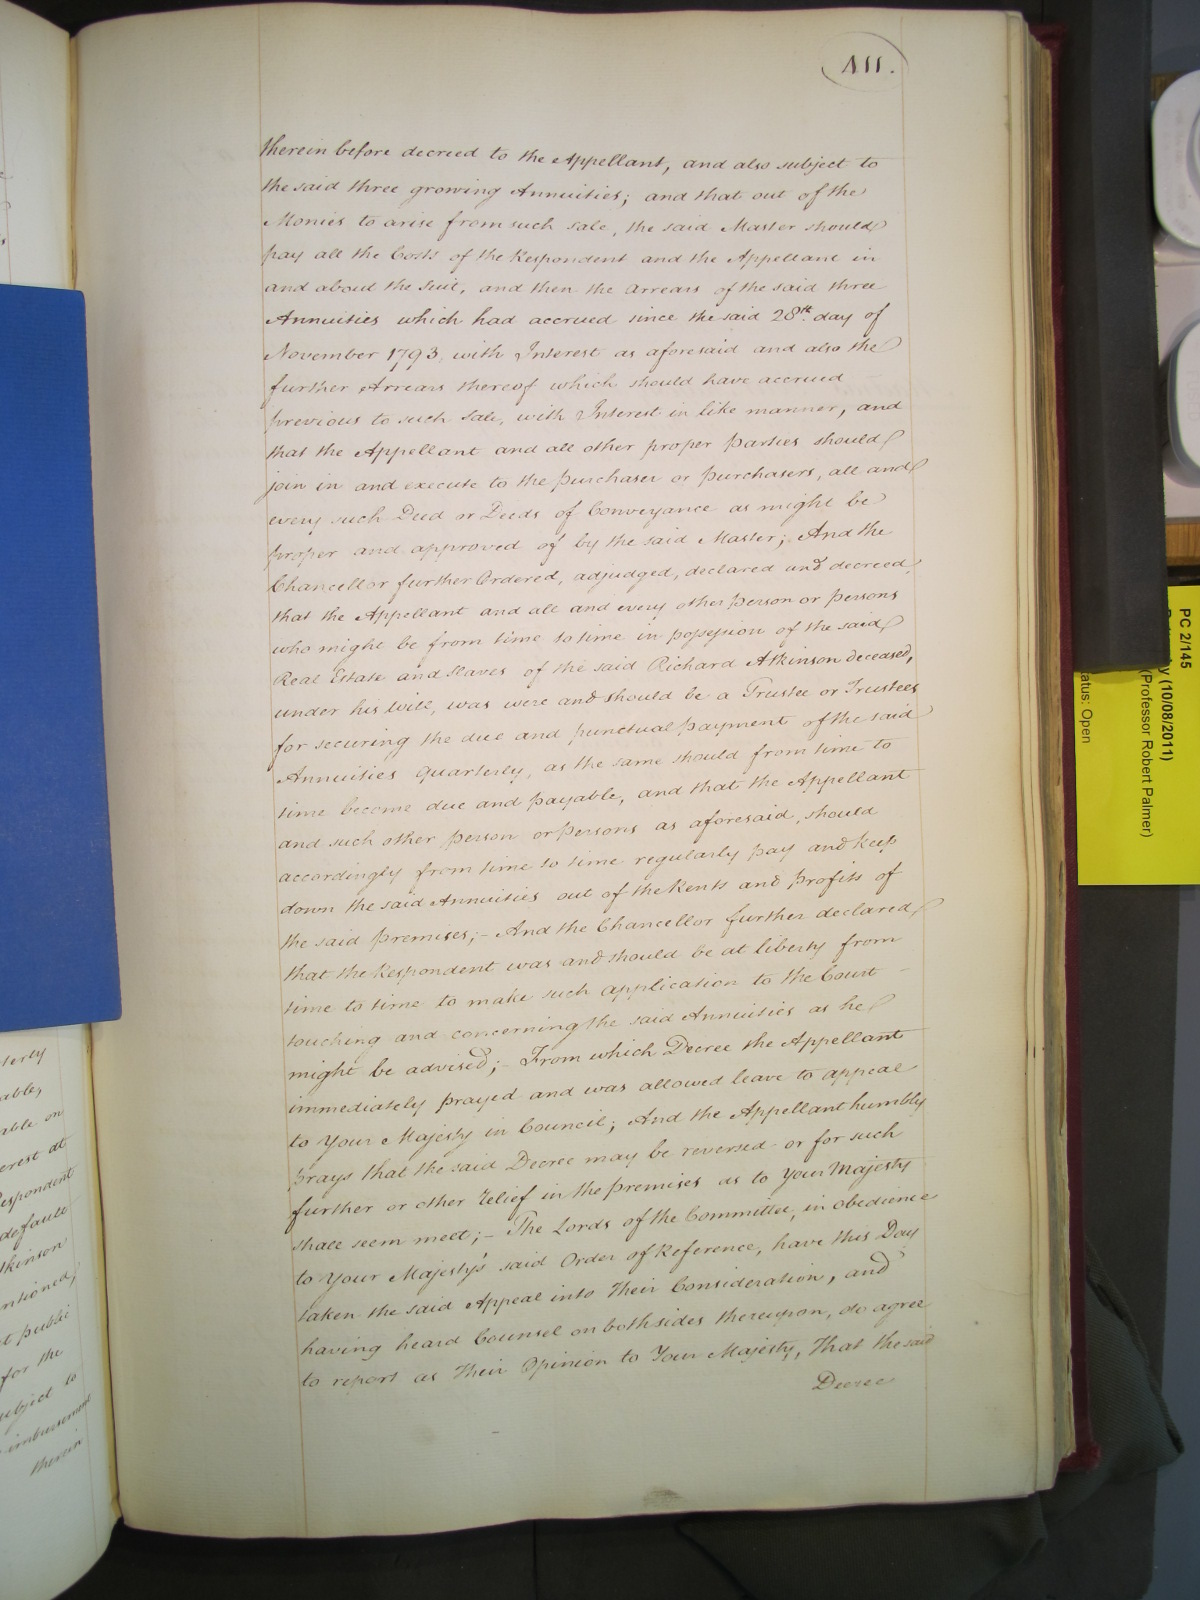 411.
therein before decreed to the Appellant, and also subject to
the said three growing Annuities; and that out of the
Monies to arise from such sale, the said Master should
pay all the Costs of the Respondent and the Appellant in
and about the Suit, and then the Arrears of the said three
Annuities which had accrued since the said 28th. day of
November 1793, with Interest as aforesaid and also the
further Arrears thereof which should have accrued
previous to such Sale, with Interest in like manner, and
that the Appellant and all other proper Parties should
join in and execute to the Purchaser or Purchasers, all and
every such Deed or Deeds of Conveyance as might be
proper and approved of by the said Master; And the
Chancellor further Ordered, adjudged, declared and decreed,
that the Appellant and all and every other Person or Persons
who might be from time to time in possession of the said
Real Estate and Slaves of the said Richard Atkinson deceased,
under his Will, was were and should be a Trustee or Trustees
for securing the due and punctual payment of the said
Annuities Quarterly, as the same should from time to
time become due and payable, and that the Appellant
and such other Person or Persons as aforesaid, should
accordingly from time to time regularly pay and keep
down the said Annuities out of the Rents and Profits of
the said Premises;- And the Chancellor further declared,
that the Respondent was and should be at liberty from
time to time to make such application to the Court
touching and concerning the said Annuities as he
might be advised;- From which Decree the Appellant
immediately prayed and was allowed leave to appeal
to Your Majesty in Council; And the Appellant humbly
prays that the said Decree may be reversed or for such
further or other relief in the premises as to Your Majesty
shall seem meet;- The Lords of the Committee, in obedience
to Your Majesty's said Order of Reference, have this Day
taken the said Appeal into Their Consideration, and
having heard Counsel on both sides thereupon, do agree
to report as Their Opinion to Your Majesty, That the said
Decree
terly
able,
able on
erest at
Respondent
default
tkinson
entioned,
t public
for the
ubject to
imbursement
therein
PC 2/145
(10/08/2011)
(Professor Robert Palmer)
atus: Open